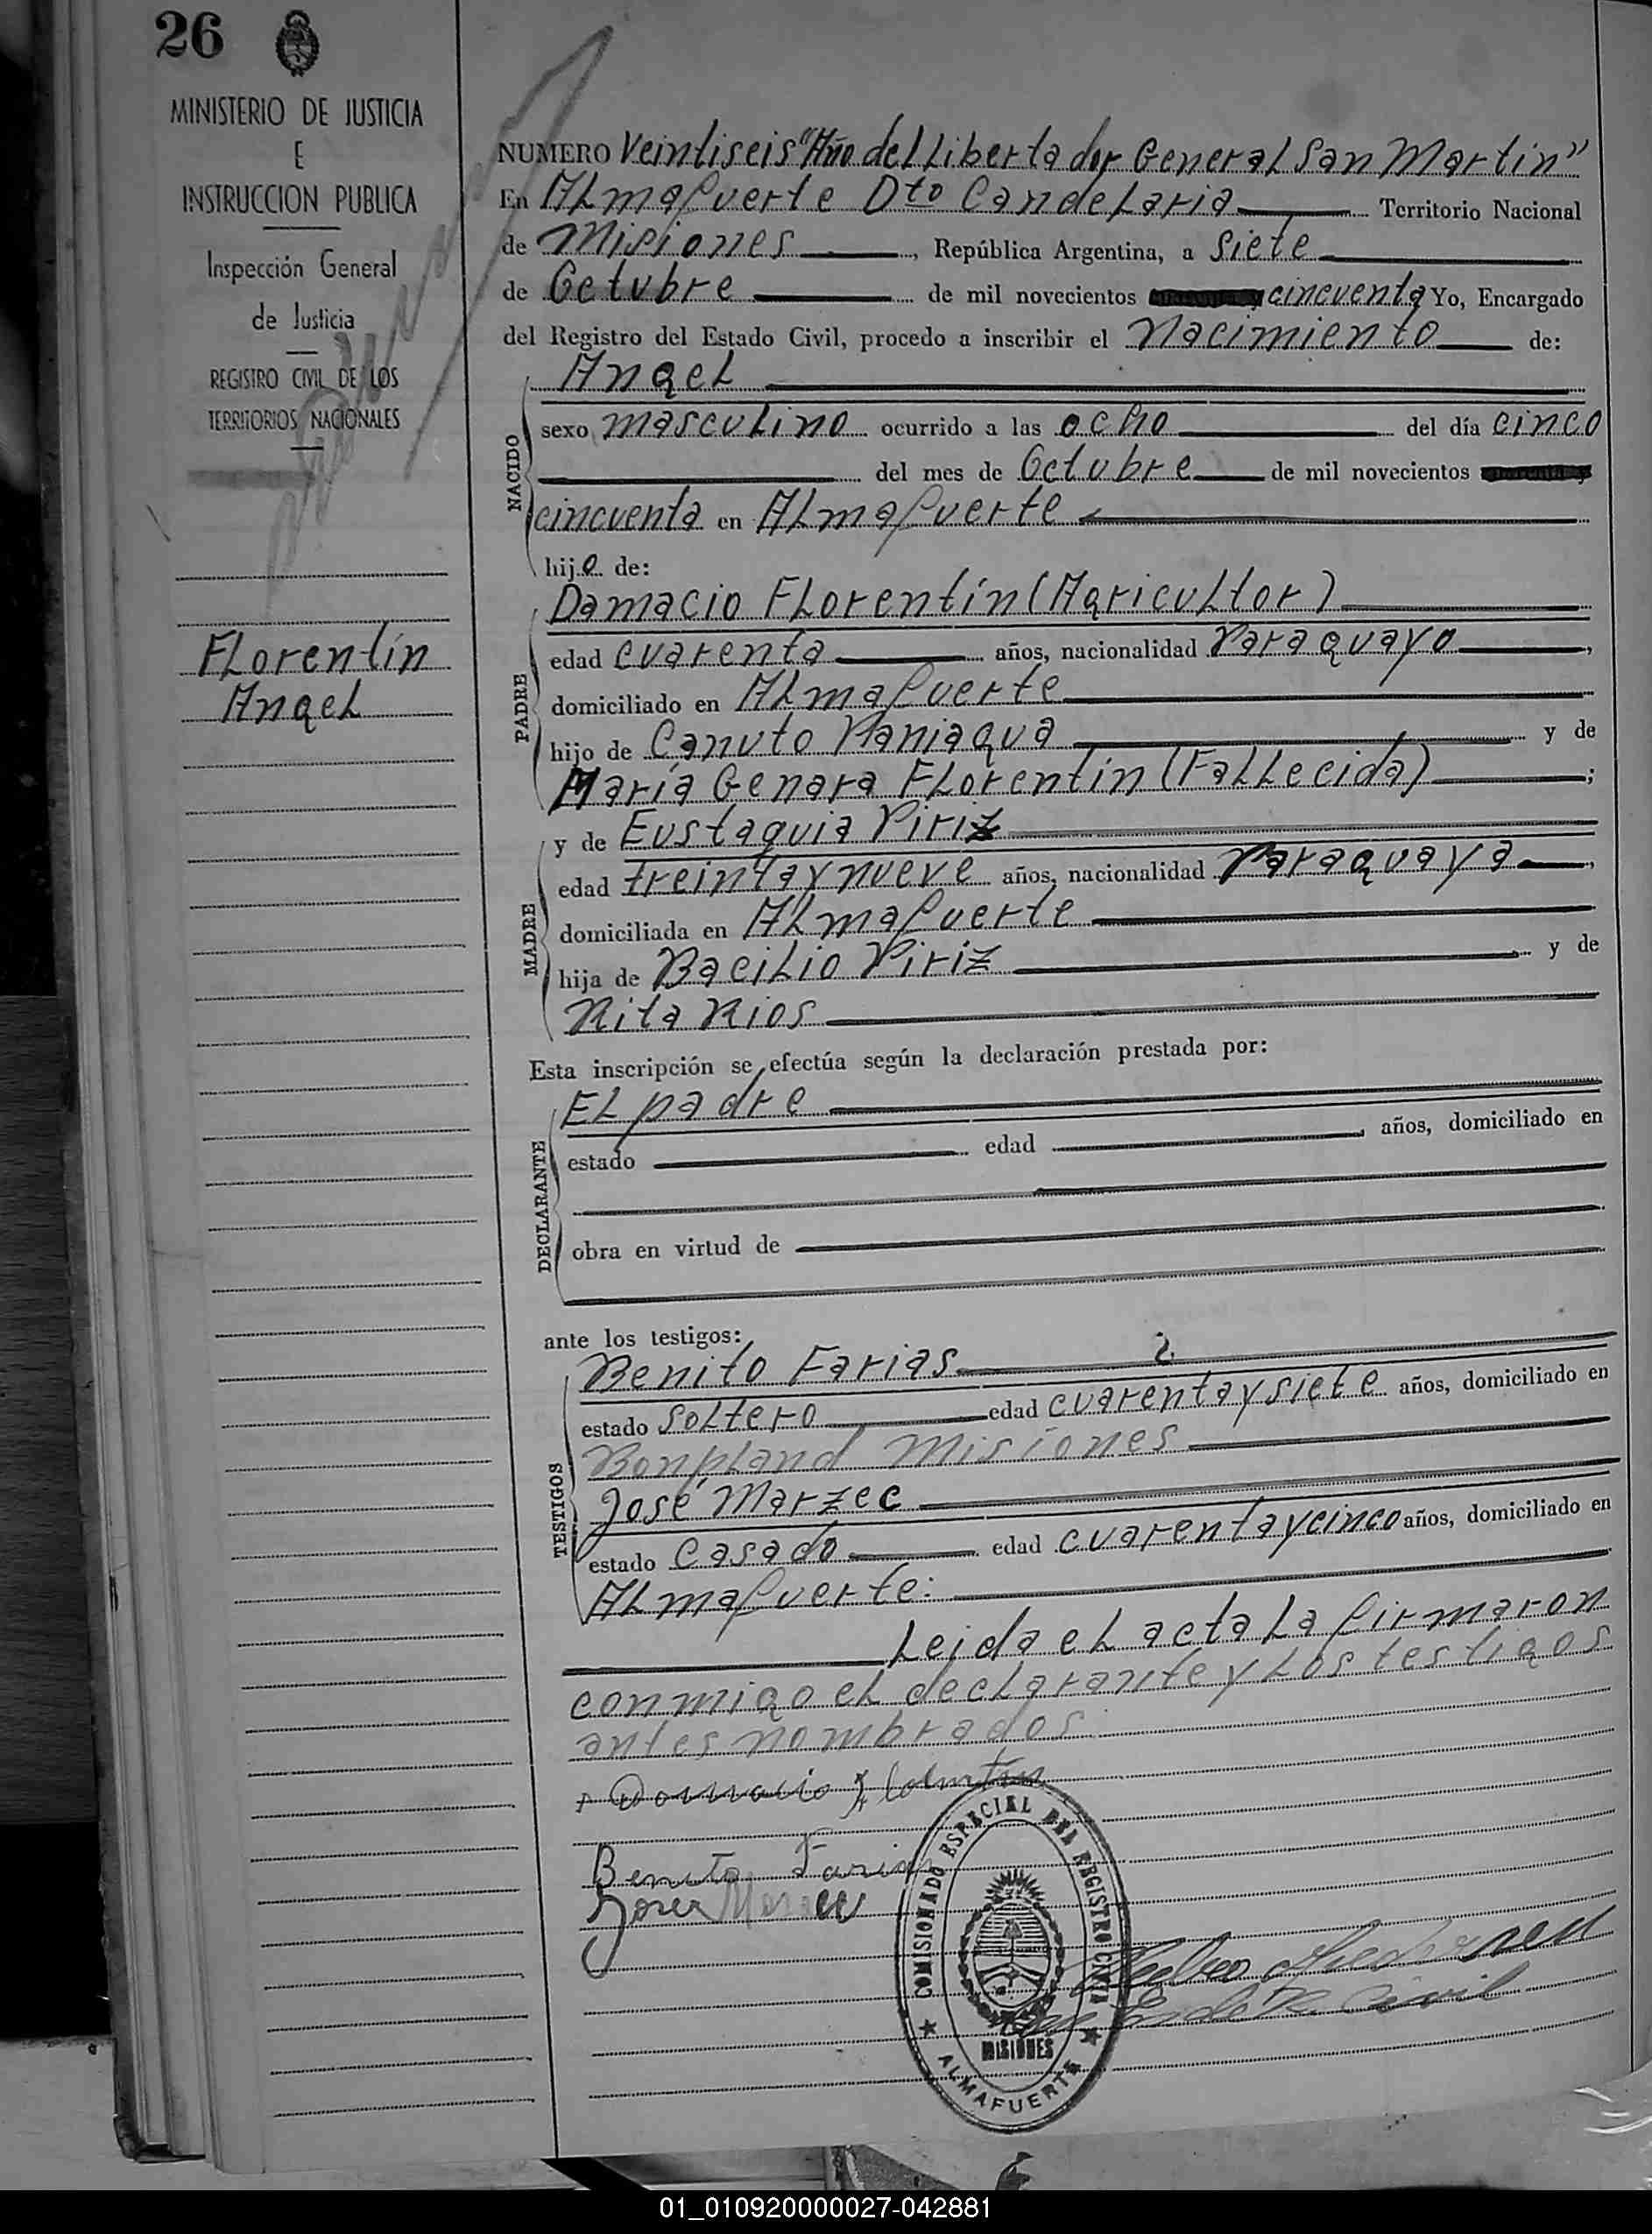 26
MINISTERIO DE JUSTICIA
E
INSTRUCCION PUBLICA
Inspección General
de Justicia
REGISTRO CIVIL DE LOS
TERRITORIOS NACIONALES
Florentín
Angel
NUMERO Veintiseis "Año del Libertador General San Martín"
En Almafuerte Dto Candelaria Territorio Nacional
de Misiones, República Argentina, a Siete
de Octubre de mil novecientos cincuenta Yo, Encargado
del Registro del Estado Civil, procedo a inscribir el Nacimiento de:
NACIDO
Angel
sexo masculino ocurrido a las ocho del día cinco
del mes de Octubre de mil novecientos
cincuenta en Almafuerte
hijo de:
PADRE
Damacio Florentín (Agricultor)
edad cuarenta años, nacionalidad Paraguayo,
domiciliado en Almafuerte
hijo de Canuto Paniagua y de
María Genara Florentín (Fallecida);
MADRE
y de Eustaquia Piriz
edad treinta y nueve años, nacionalidad Paraguaya,
domiciliada en Almafuerte
hija de Bacilio Piriz y de
Rita Rios
Esta inscripción se efectúa según la declaración prestada por:
DECLARANTE
El padre
estado edad, años, domiciliado en
obra en virtud de
ante los testigos:
TESTIGOS
Benito Farias
estado soltero edad cuarenta y siete años, domiciliado en
Bonpland Misiones
José Marzec
estado Casado edad cuarenta y cinco años, domiciliado en
Almafuerte:
Leida el acta la firmaron
conmigo el declarante y los testigos
antes nombrados.
Damacio Florentin
Benito Farias
COMISIONADO ESPECIAL DEL REGISTRO CIVIL
MISIONES
★ ALMAFUERTE ★
Civil
01_010920000027-042881